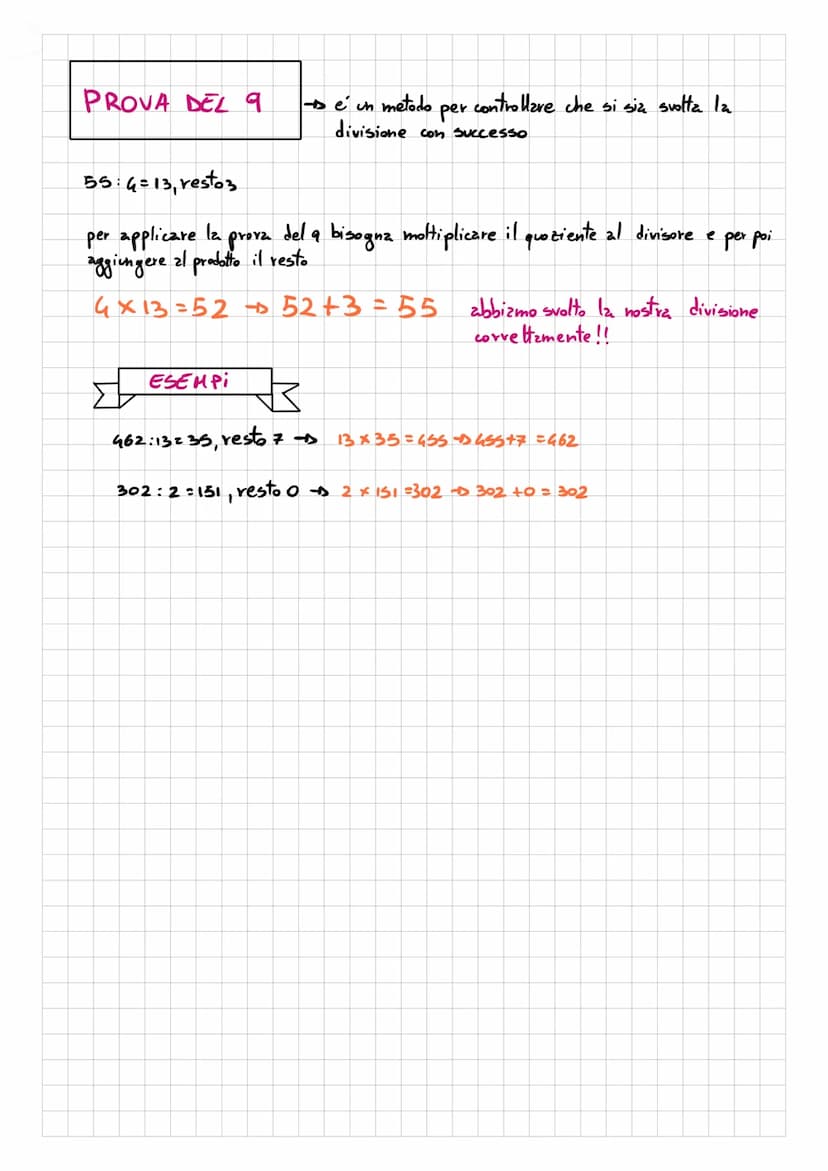 PROVA DEL 9
→ e' un metodo per controllare che si sia svolta la
divisione con successo
55 : 4 = 13, resto 3
per applicare la prova del 9 bisogna moltiplicare il quoziente al divisore e per poi
aggiungere al prodotto il resto
4 × 13 = 52 → 52 + 3 = 55 abbiamo svolto la nostra divisione
correttamente!!
ESEMPi
462 : 13 = 35, resto 7 → 13 × 35 = 455 → 455 + 7 = 462
302 : 2 = 151, resto 0 → 2 × 151 = 302 → 302 + 0 = 302